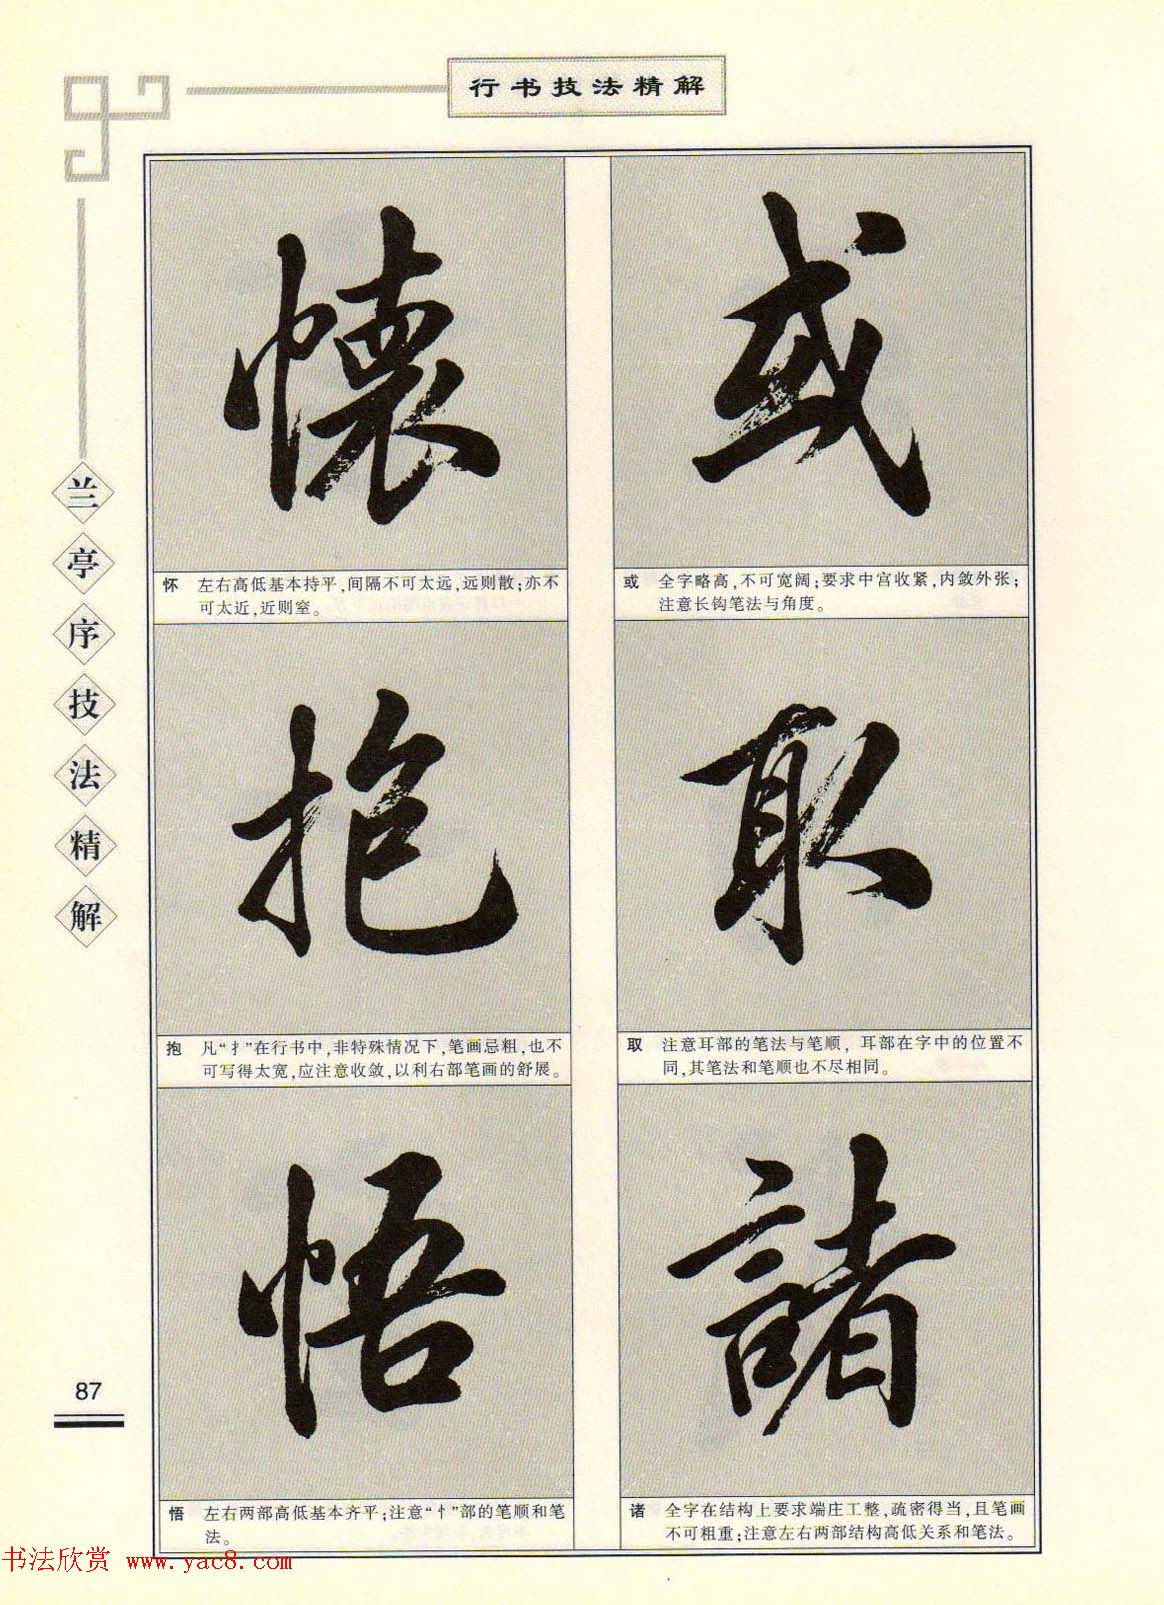 行书技法精解
兰亭序技法精解
或
或 全字略高,不可宽阔;要求中宫收紧,内敛外张;
注意长钩笔法与角度。
取
取 注意耳部的笔法与笔顺,耳部在字中的位置不
同,其笔法和笔顺也不尽相同。
諸
诸 全字在结构上要求端庄工整,疏密得当,且笔画
不可粗重;注意左右两部结构高低关系和笔法。
懷
怀 左右高低基本持平,间隔不可太远,远则散;亦不
可太近,近则窒。
抱
抱 凡“扌”在行书中,非特殊情况下,笔画忌粗,也不
可写得太宽,应注意收敛,以利右部笔画的舒展。
悟
悟 左右两部高低基本齐平;注意“忄”部的笔顺和笔
法。
87
书法欣赏 www.yac8.com